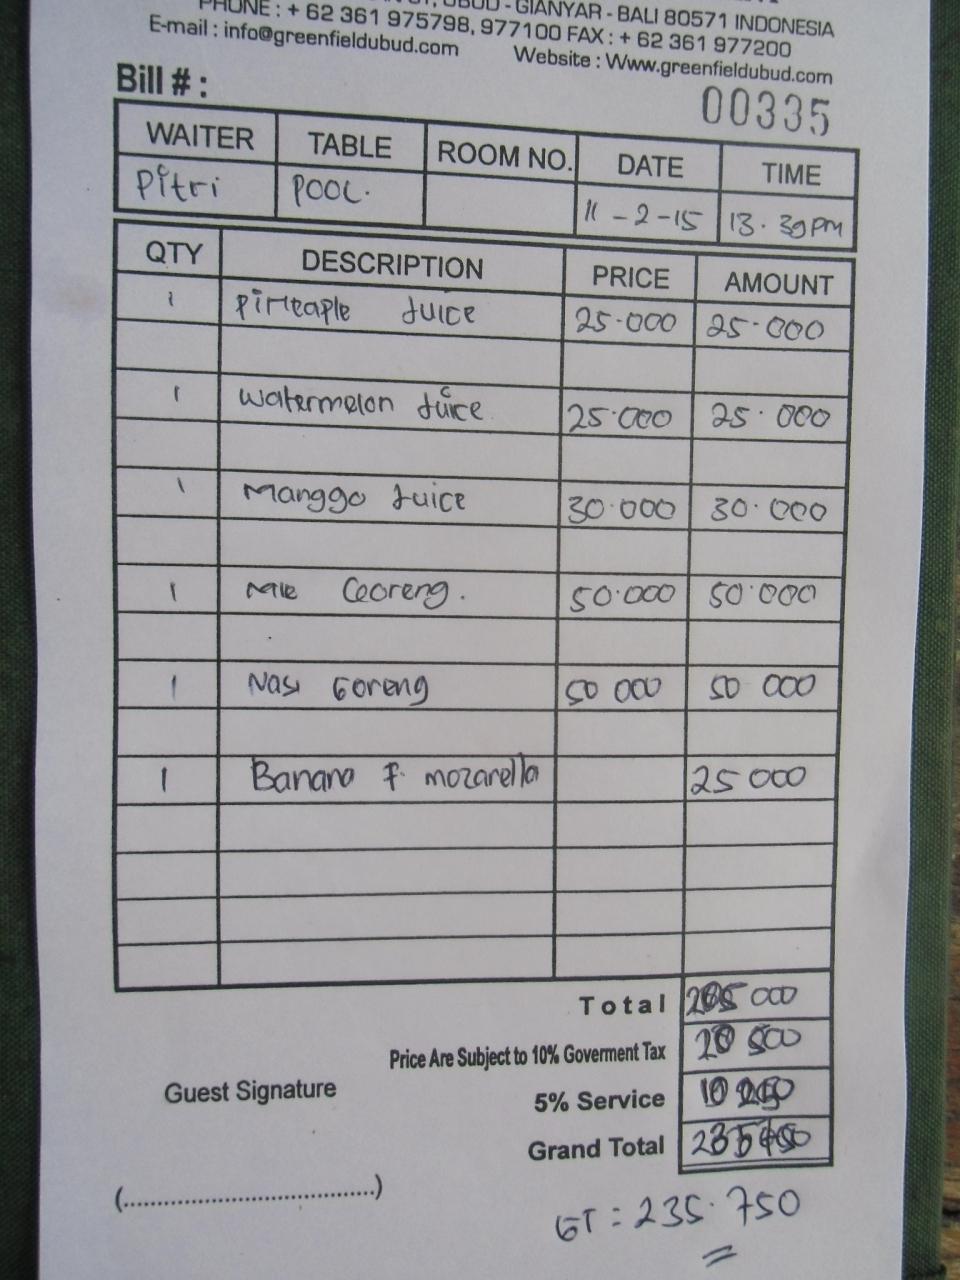 UBUD - GIANYAR - BALI 80571 INDONESIA
PHONE : + 62 361 975798, 977100 FAX : + 62 361 977200
E-mail : info@greenfieldubud.com Website : Www.greenfieldubud.com
Bill # : 00335
WAITER TABLE ROOM NO. DATE TIME
Pitri POOL. 11 - 2 - 15 13. 30 PM
QTY DESCRIPTION PRICE AMOUNT
1 Pineaple Juice 25.000 25.000
1 Watermelon Juice 25.000 25.000
1 Manggo Juice 30.000 30.000
1 Mie Goreng. 50.000 50.000
1 Nasi Goreng 50 000 50 000
1 Banana F. mozarella 25 000
Total 205 000
Price Are Subject to 10% Goverment Tax 20 500
5% Service 10 250
Guest Signature
Grand Total
(....................................)
GT : 235.750